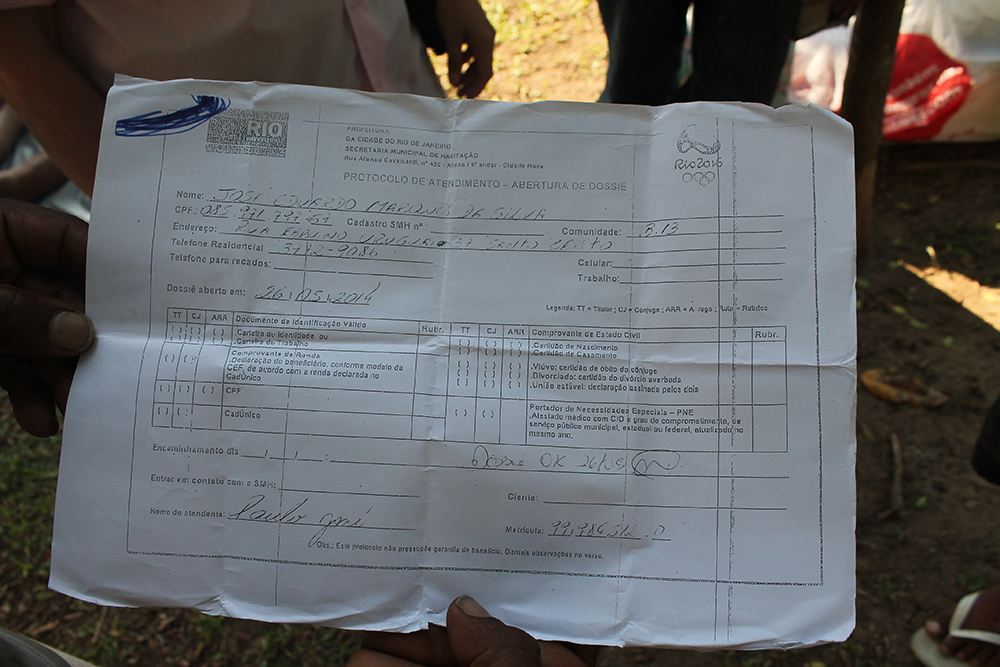 RIO
PREFEITURA
DA CIDADE DO RIO DE JANEIRO
SECRETARIA MUNICIPAL DE HABITAÇÃO
Rua Afonso Cavalcanti, nº 455 - Anexo / 4º andar - Cidade Nova
RIO2016
PROTOCOLO DE ATENDIMENTO – ABERTURA DE DOSSIÊ
Nome: JOSÉ EDUARDO MARQUES DA SILVA
CPF: Cadastro SMH nº Comunidade: 3.13
Endereço: RUA 37 SANTO CRISTO
Telefone Residencial Celular:
Telefone para recados: Trabalho:
Dossiê aberto em: 26/05/2014
Legenda: TT = Titular ; CJ = Conjuge ; ARR = A rogo ; Rubr = Rubrica
TT CJ ARR Documento de Identificação Válido Rubr.
( ) ( ) ( ) .Carteira de Identidade ou
( ) ( ) ( ) .Carteira de Trabalho
( ) ( ) Comprovante de Renda
.Declaração do beneficiário, conforme modelo da
CEF, de acordo com a renda declarada no
CadÚnico
( ) ( ) ( ) CPF
( ) ( ) CadÚnico
TT CJ ARR Comprovante de Estado Civil Rubr.
( ) ( ) ( ) .Certidão de Nascimento
( ) ( ) ( ) .Certidão de Casamento
( ) ( ) ( ) .Viúvo: certidão de óbito do cônjuge
( ) ( ) ( ) .Divorciado: certidão do divórcio averbada
( ) ( ) ( ) .União estável: declaração assinada pelos dois
( ) ( ) Portador de Necessidades Especiais – PNE
.Atestado médico com CID e grau de comprometimento, de
serviço público municipal, estadual ou federal, atualizado no
mesmo ano.
Encaminhamento dia / / : DOSSIÊ OK 26/05
Entrar em contato com a SMH: Cliente:
Nome do atendente: Paulo Matrícula:
Obs.: Este protocolo não pressupõe garantia de benefício. Demais observações no verso.